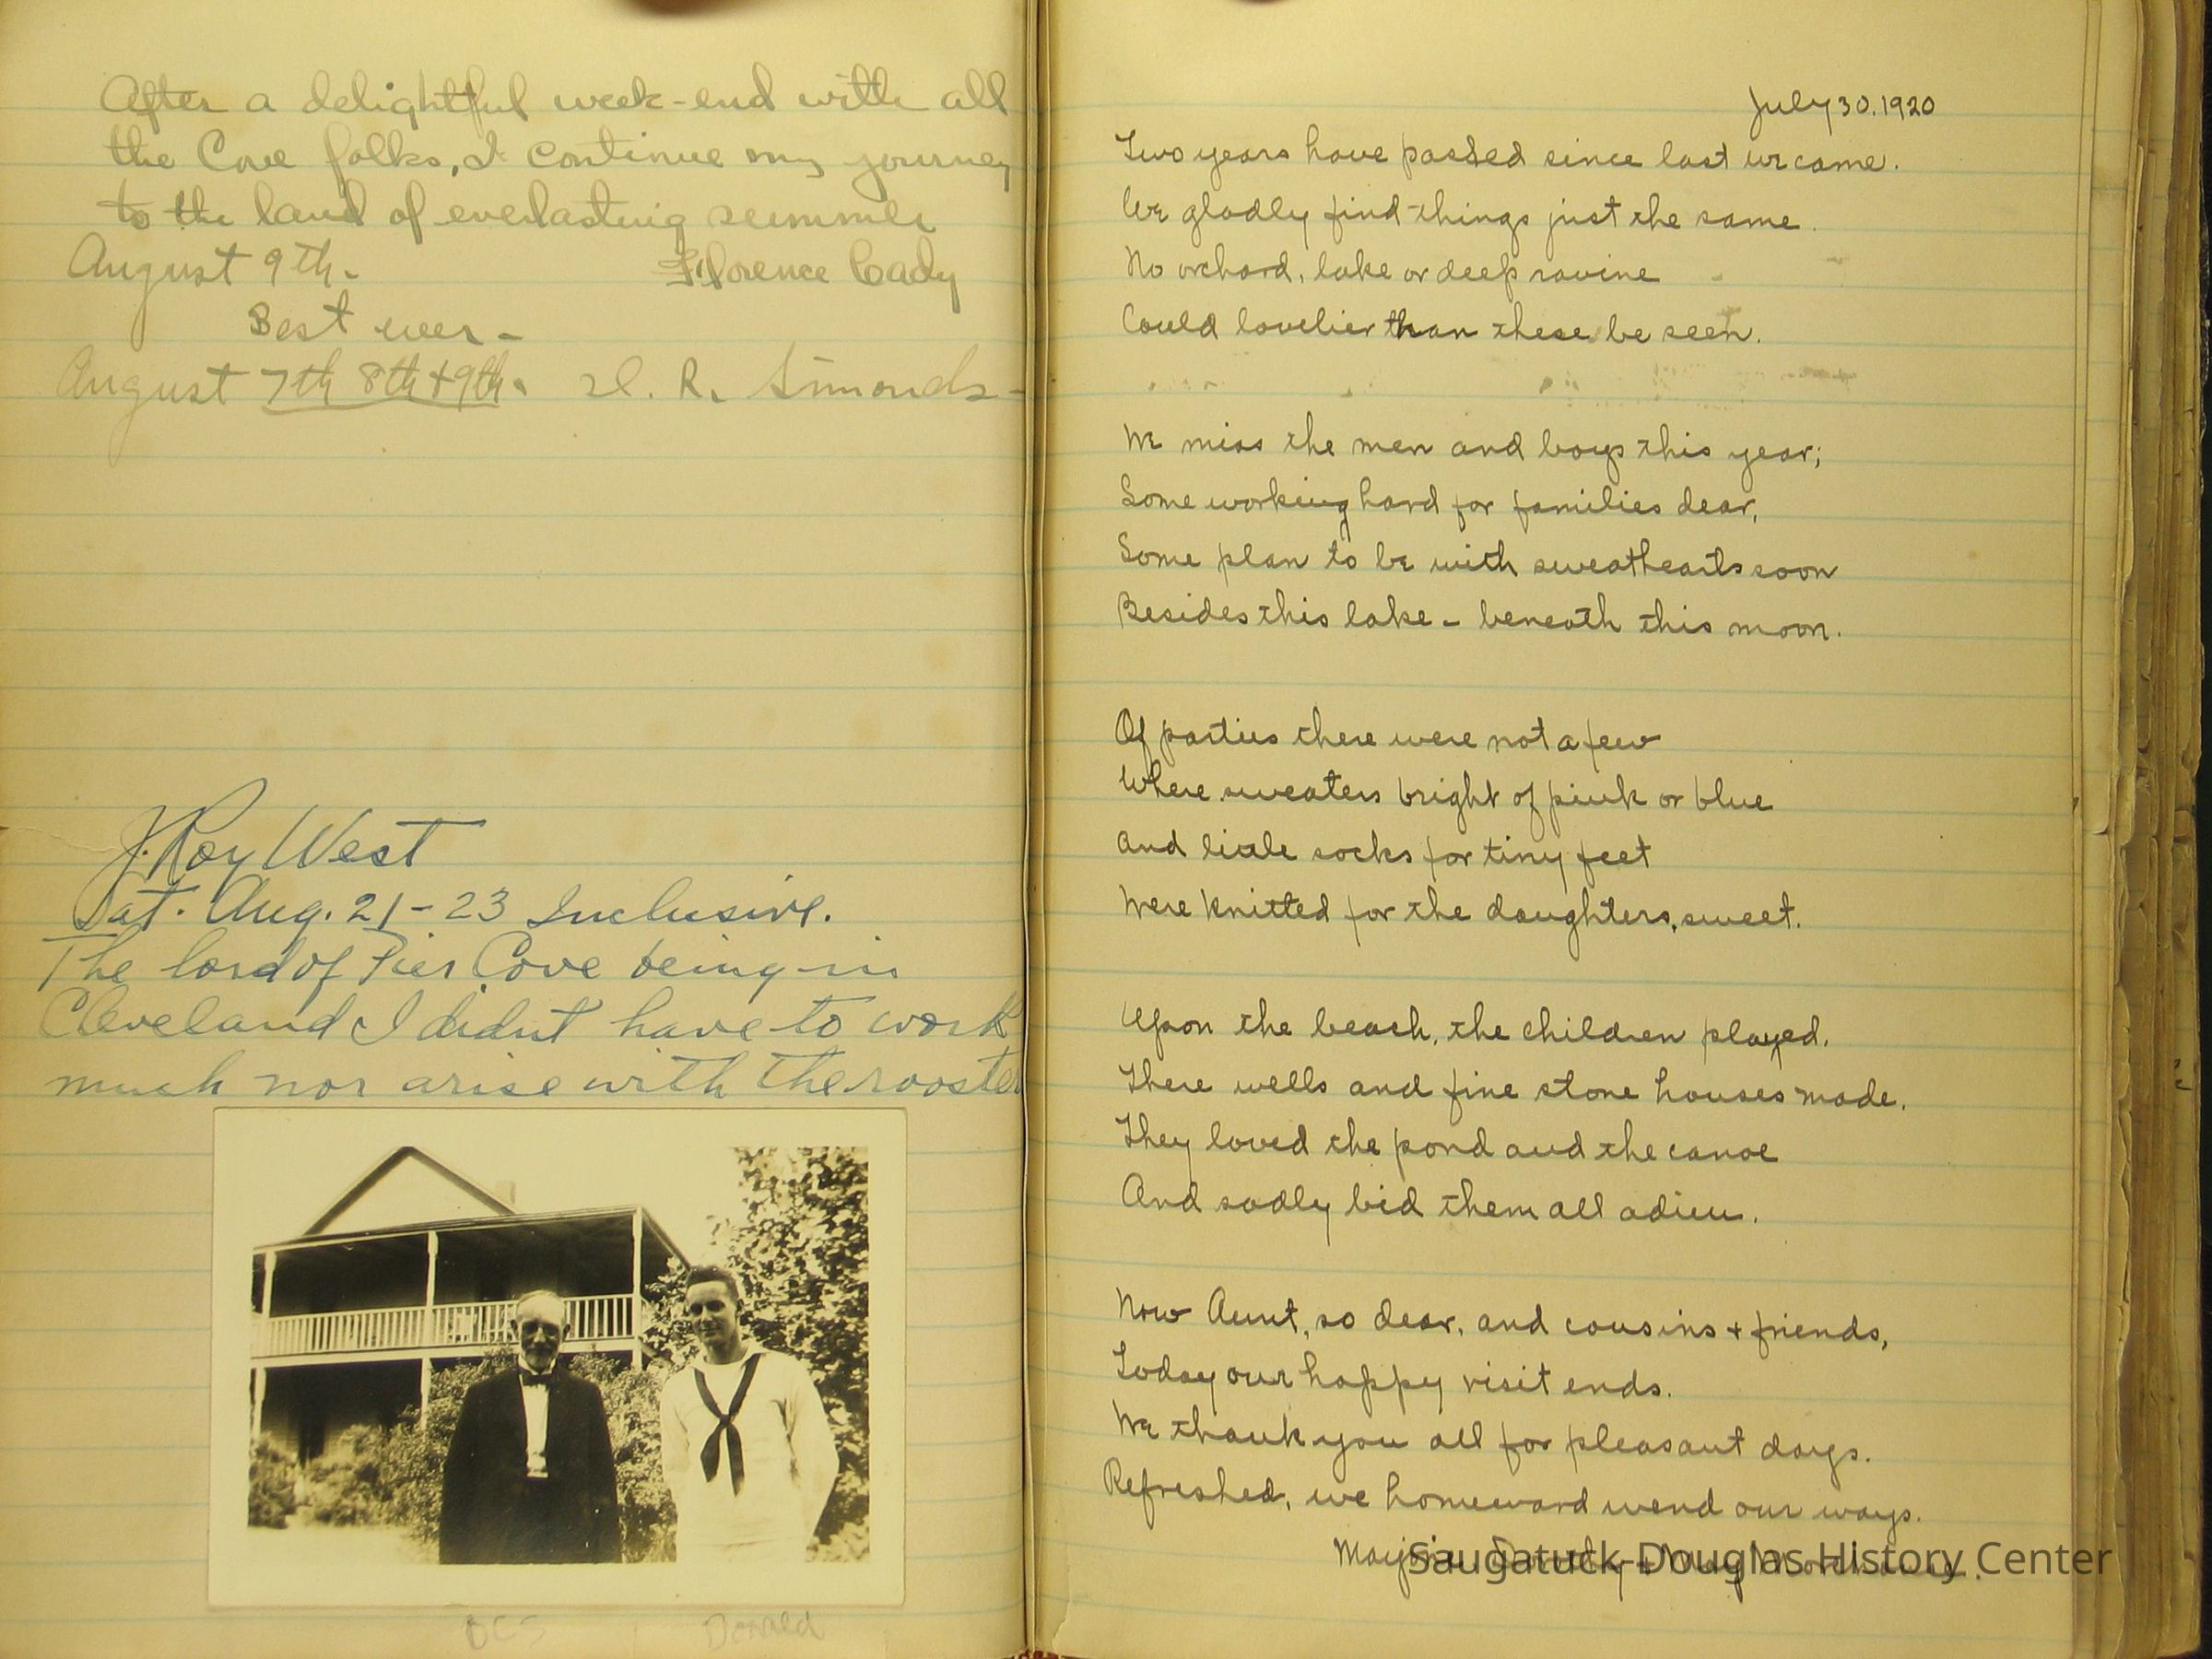 After a delightful week-end with all
the Cove folks, I continue my journey
to the land of everlasting summer
August 9th- Florence Cady
Best ever-
August 7th 8th & 9th. R. Simonds-
J. Roy West
Sat. Aug. 21-23 Inclusive.
The lord of Pier Cove being in
Cleveland I didnt have to work
much nor arise with the rooster
OCS Donald
July 30. 1920
Two years have passed since last we came.
We gladly find things just the same.
No orchard, lake or deep ravine
Could lovelier than these be seen.
We miss the men and boys this year;
Some working hard for families dear,
Some plan to be with sweathearts soon
Besides this lake - beneath this moon.
Of parties there were not a few
Where sweaters bright of pink or blue
And little socks for tiny feet
Were knitted for the daughters, sweet.
Upon the beach, the children played.
There wells and fine stone houses made.
They loved the pond and the canoe
And sadly bid them all adieu.
Now Aunt, so dear, and cousins + friends,
Today our happy visit ends.
We thank you all for pleasant days.
Refreshed, we homeward wend our ways.
Saugatuck-Douglas History Center